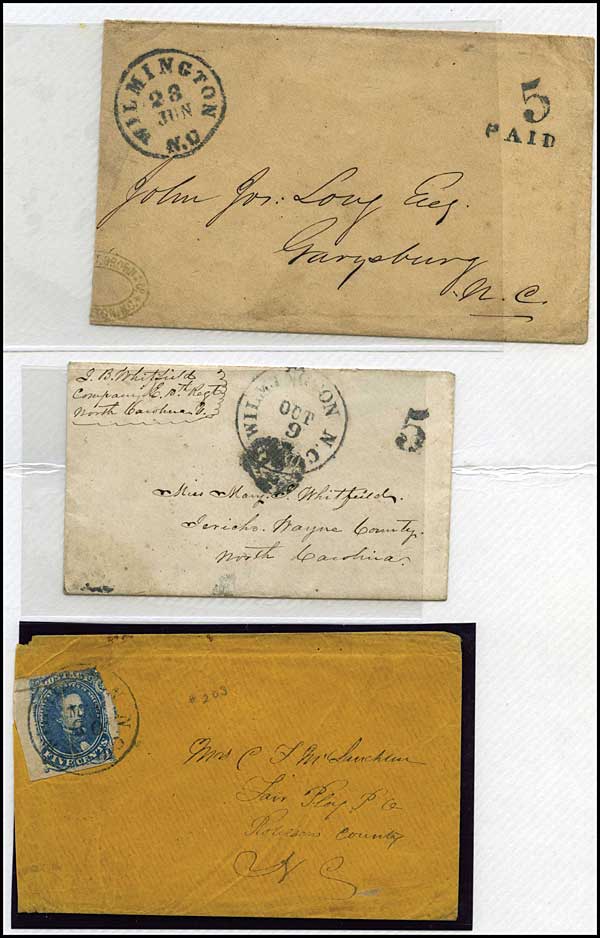 WILMINGTON
23
JUN
N.C
5
PAID
John Jos: Long Esq.
Garysburg
N. C.
J. B. Whitfield
Company E. Regt
North Carolina
WILMINGTON N.C.
OCT
9
5
Miss Mary S. Whitfield.
Jericho. Wayne County.
North Carolina.
N.C.
FIVE CENTS
203
Mrs C
Fair Play P O
Robeson County
N C